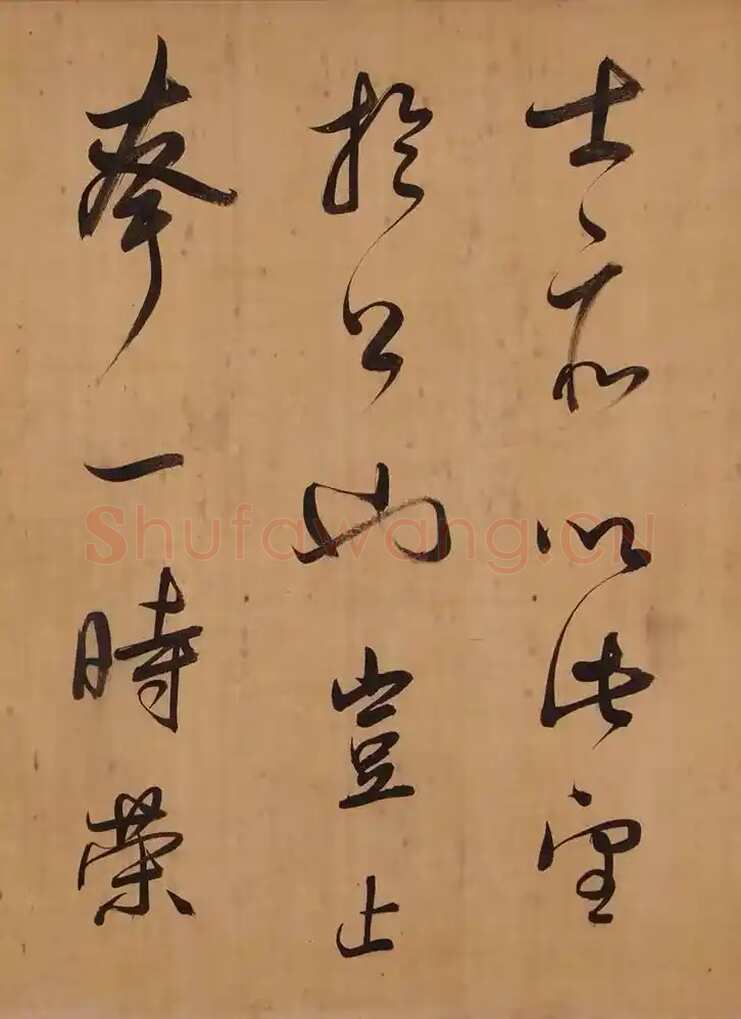 士亦以此望
於公也豈止
夸一時榮
Shufawang.CN